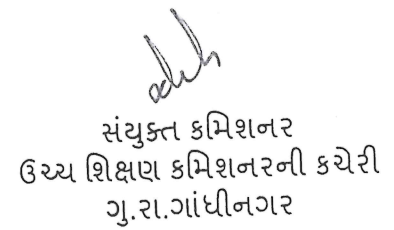 સંયુક્ત કમિશનર
ઉચ્ચ શિક્ષણ કમિશનરની કચેરી
ગુ.રા.ગાંધીનગર